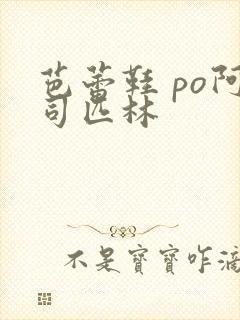 芭蕾鞋 po阿
司匹林
不是寶寶咋滴